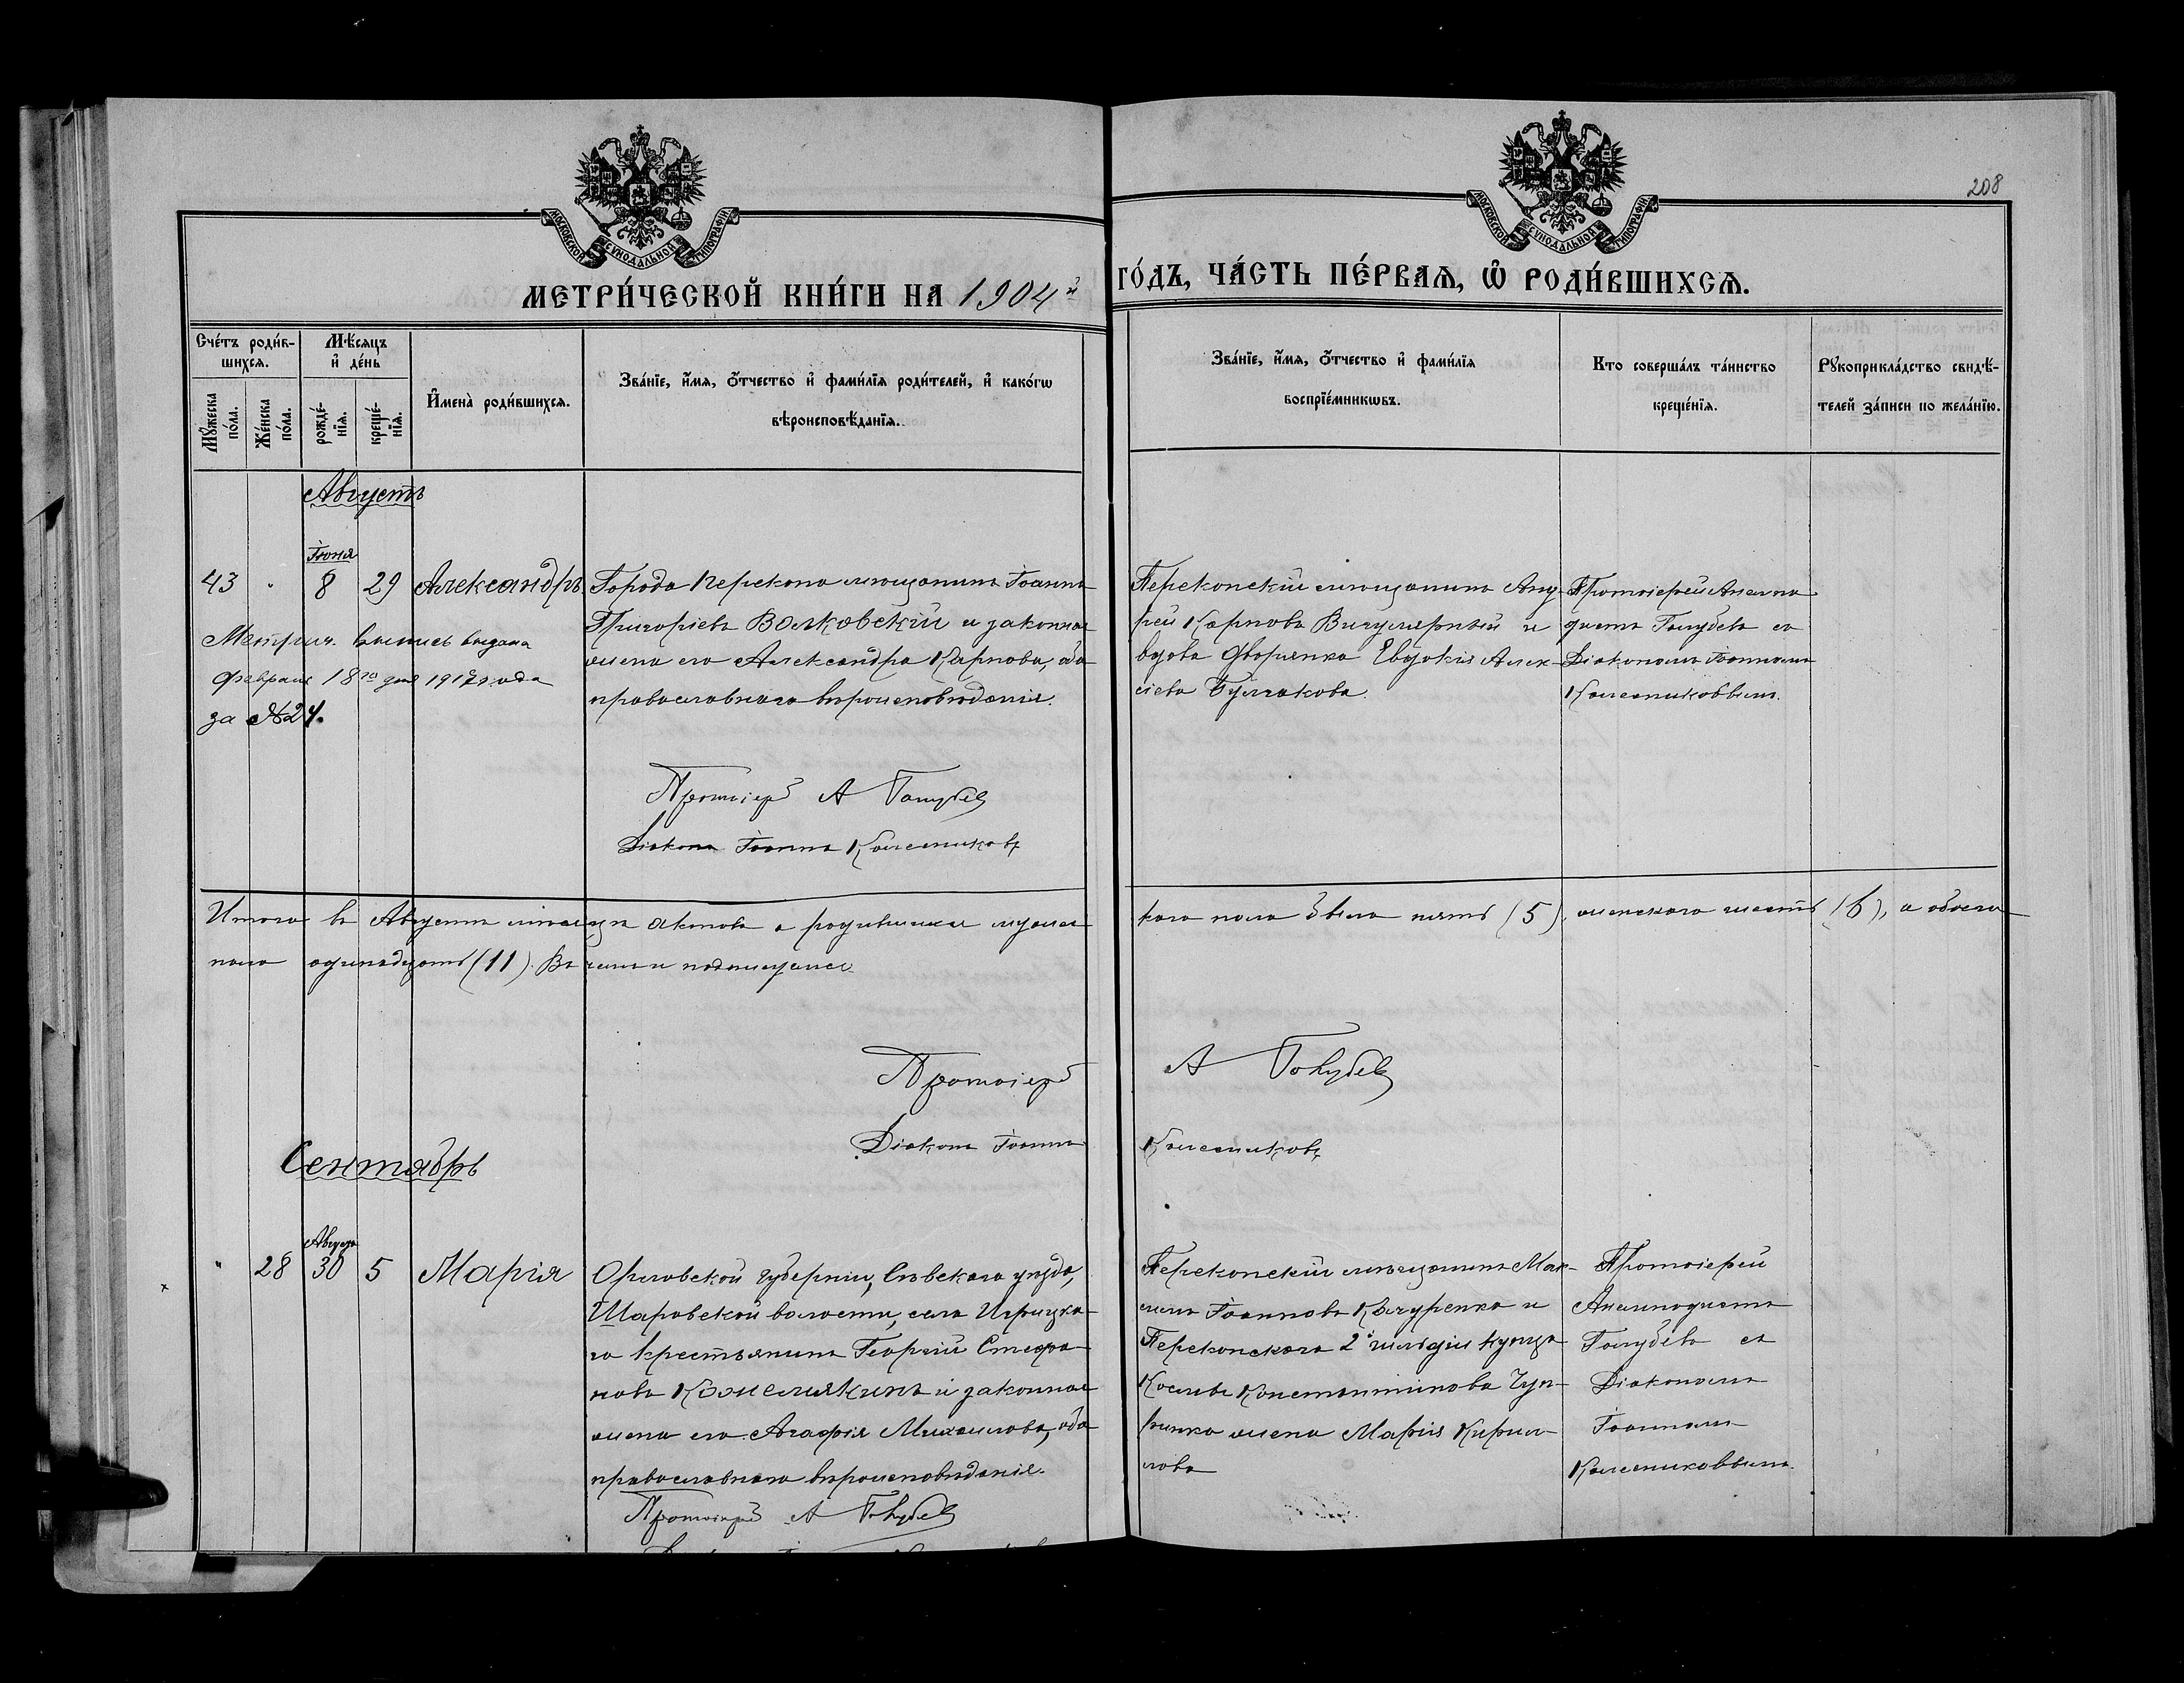 208
МОСКОВСКОЙ СѴНОДАЛЬНОЙ ТИПОГРАФІИ
МОСКОВСКОЙ СѴНОДАЛЬНОЙ ТИПОГРАФІИ
МЕТРИ́ЧЕСКОЙ КНИ́ГИ НА 1904й
ГО́ДЪ, ЧА́СТЬ ПЕ́РВАѦ, Ѽ РОДИ́ВШИХСѦ.
Сче́тъ роди́в-
шихсѧ.
Мꙋ́жеска
по́ла.
Же́нска
по́ла.
Мѣ́сѧцъ
и҆ де́нь
рожде́-
нїѧ.
креще́-
нїѧ.
И҆мена̀ роди́вшихсѧ.
Зва́нїе, и҆́мѧ, ѻ҆́тчество и҆ фами́лїѧ роди́телей, и҆ како́гѡ
вѣроисповѣ́данїѧ.
Зва́нїе, и҆́мѧ, ѻ҆́тчество и҆ фами́лїѧ
воспрїе́мникѡвъ.
Кто соверша́лъ та́инство
креще́нїѧ.
Рꙋкоприкла́дство свидѣ́-
телей за́писи по жела́нїю.
Августъ
Іюня
43 " 8 29 Александръ
Города Перекопа мѣщанинъ Іоаннъ
Григоріевъ Волковскій и законная
жена его Александра Карпова, оба
православнаго вѣроисповѣданія.
Перекопскій мѣщанинъ Анд-
рей Карповъ Вигулярный и
вдова дворянка Евдокія Алек-
сіева Булгакова.
Протоіерей Анемпо-
дистъ Голубевъ съ
Діакономъ Іоанномъ
Колесниковымъ.
Метрич. выпись выдана
Февраля 18го дня 1912 года
за №24.
Протоіерей А Голубев
Діаконъ Іоаннъ Колесниковъ
Итого въ Августѣ мѣсяцѣ актовъ о родившихся мужес-
каго пола было пять (5), женскаго шесть (6), а обоего
пола одинадцать (11). Въ чемъ и подписуемся
Протоіерей А Голубев
Діаконъ Іоаннъ Колесниковъ
Сентябрь
Августа
" 28 30 5 Марія
Орловской губерніи, Сѣвскаго уѣзда,
Шаровской волости, села Игрицка-
го крестьянинъ Георгій Стефа-
новъ Кожемякинъ и законная
жена его Агафія Михаилова, оба
православнаго вѣроисповѣданія.
Перекопскій мѣщанинъ Мак-
симъ Іоанновъ Качуренко и
Перекопскаго 2й гильдіи купца
Космы Константинова Чуп-
ринко жена Марія Кирил-
лова
Протоіерей
Анемподистъ
Голубевъ съ
Діакономъ
Іоанномъ
Колесниковымъ.
Протоіерей А Голубев